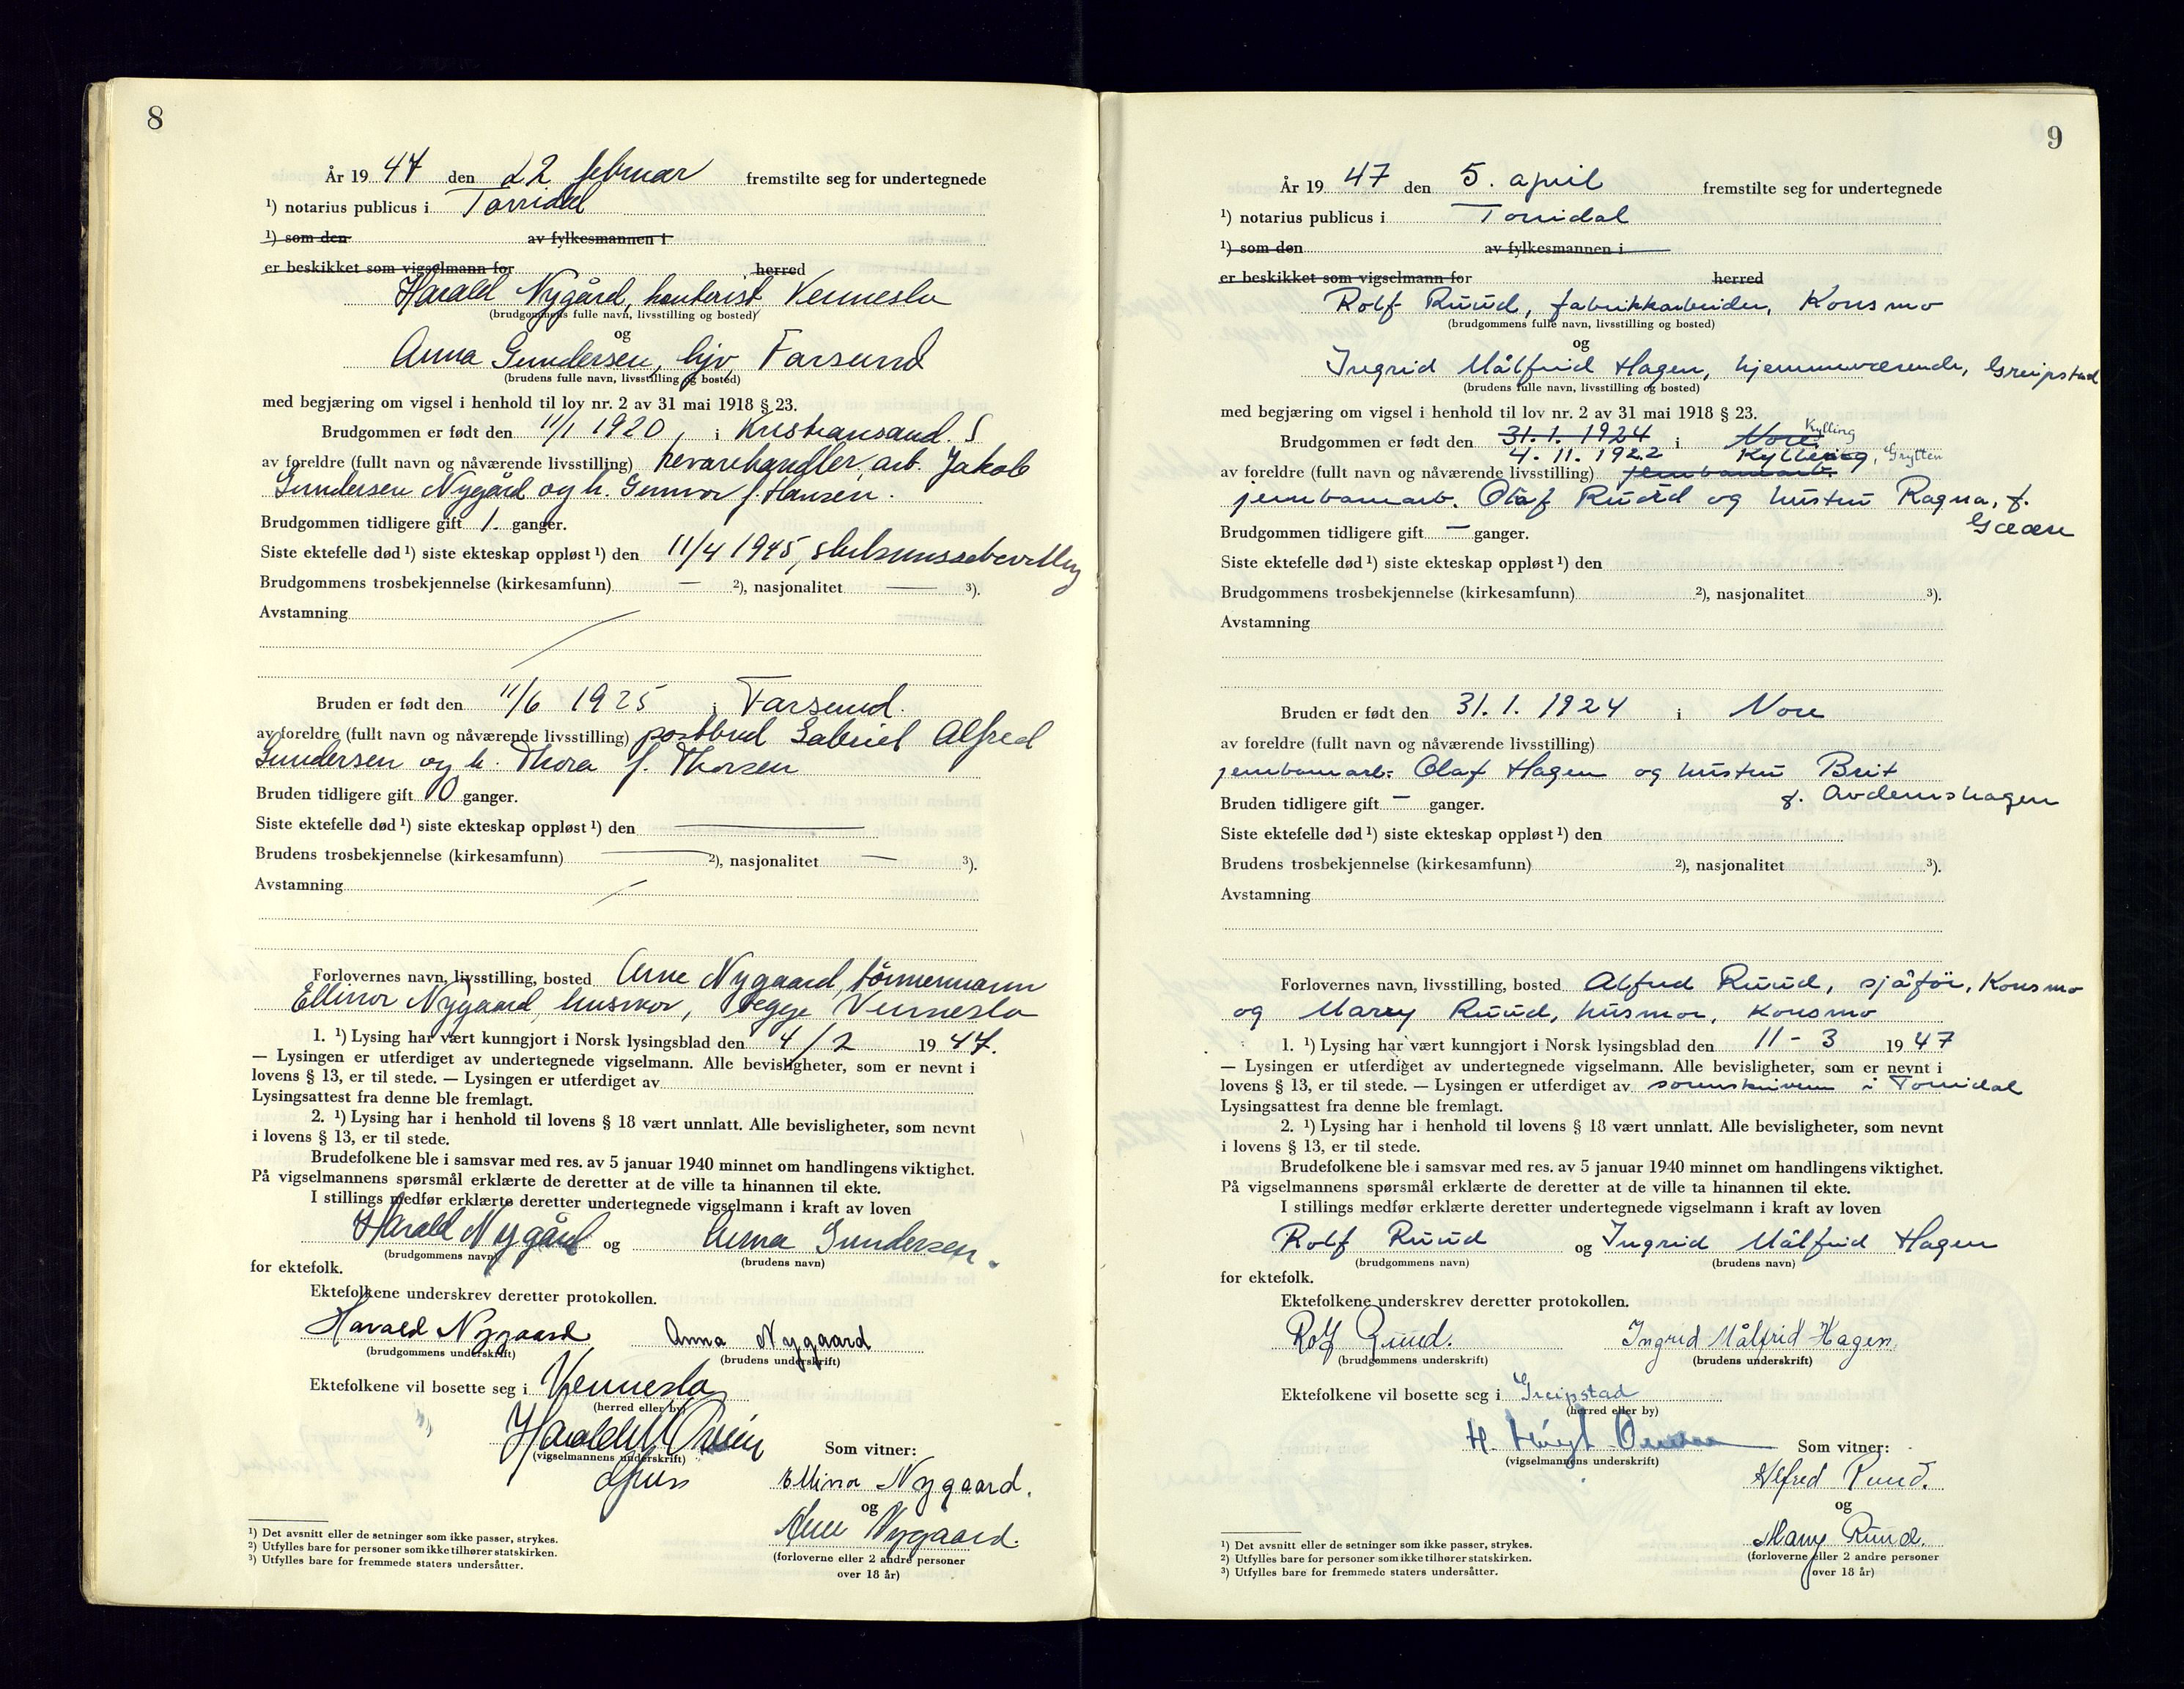 8
År 19 47 den 22 februar fremstilte seg for undertegnede
¹) notarius publicus i Torridal
¹) som den av fylkesmannen i
er beskikket som vigselmann for herred
Harald Nygård, kontorist Vennesla
(brudgommens fulle navn, livsstilling og bosted)
og
Anna Gundersen, hjv, Farsund
(brudens fulle navn, livsstilling og bosted)
med begjæring om vigsel i henhold til lov nr. 2 av 31 mai 1918 § 23.
Brudgommen er født den 11/1 1920, i Kristiansand. S
av foreldre (fullt navn og nåværende livsstilling) arb. Jakob
Gundersen Nygård og h. Gunvor f. Hansen.
Brudgommen tidligere gift 1. ganger.
Siste ektefelle død ¹) siste ekteskap oppløst ¹) den 11/4 1945,
Brudgommens trosbekjennelse (kirkesamfunn) — ²), nasjonalitet — ³).
Avstamning
Bruden er født den 11/6 1925 i Farsund.
av foreldre (fullt navn og nåværende livsstilling) postbud Gabriel Alfred
Gundersen og h. Thora f. Thorsen
Bruden tidligere gift 0 ganger.
Siste ektefelle død ¹) siste ekteskap oppløst ¹) den —
Brudens trosbekjennelse (kirkesamfunn) — ²), nasjonalitet — ³).
Avstamning
Forlovernes navn, livsstilling, bosted Arne Nygaard, tömmermann
Ellinor Nygaard, husmor, begge Vennesla
1. ¹) Lysing har vært kunngjort i Norsk lysingsblad den 4/2 19 47.
— Lysingen er utferdiget av undertegnede vigselmann. Alle bevisligheter, som er nevnt i
lovens § 13, er til stede. — Lysingen er utferdiget av
Lysingsattest fra denne ble fremlagt.
2. ¹) Lysing har i henhold til lovens § 18 vært unnlatt. Alle bevisligheter, som nevnt
i lovens § 13, er til stede.
Brudefolkene ble i samsvar med res. av 5 januar 1940 minnet om handlingens viktighet.
På vigselmannens spørsmål erklærte de deretter at de ville ta hinannen til ekte.
I stillings medfør erklærte deretter undertegnede vigselmann i kraft av loven
Harald Nygård og Anna Gundersen.
(brudgommens navn) (brudens navn)
for ektefolk.
Ektefolkene underskrev deretter protokollen.
Harald Nygaard Anna Nygaard
(brudgommens underskrift) (brudens underskrift)
Ektefolkene vil bosette seg i Vennesla
(herred eller by)
(vigselmannens underskrift)
Som vitner:
Ellinor Nygaard.
og
Arne Nygaard.
(forloverne eller 2 andre personer
over 18 år)
¹) Det avsnitt eller de setninger som ikke passer, strykes.
²) Utfylles bare for personer som ikke tilhører statskirken.
³) Utfylles bare for fremmede staters undersåtter.
9
År 19 47 den 5. april fremstilte seg for undertegnede
¹) notarius publicus i Torridal
¹) som den av fylkesmannen i
er beskikket som vigselmann for herred
Rolf Ruud, fabrikkarbeider, Konsmo
(brudgommens fulle navn, livsstilling og bosted)
og
Ingrid Målfrid Hagen, hjemmeværende, Greipstad
(brudens fulle navn, livsstilling og bosted)
med begjæring om vigsel i henhold til lov nr. 2 av 31 mai 1918 § 23.
Kylling
Brudgommen er født den 31.1.1924 i Nore
4.11.1922 Kylling, Grytten
av foreldre (fullt navn og nåværende livsstilling) jernbanearb.
jernbanearb. Olaf Ruud og hustru Ragna, f.
Brudgommen tidligere gift — ganger.
Siste ektefelle død ¹) siste ekteskap oppløst ¹) den
Brudgommens trosbekjennelse (kirkesamfunn) ²), nasjonalitet ³).
Avstamning
Bruden er født den 31.1.1924 i Nore
av foreldre (fullt navn og nåværende livsstilling)
jernbanearb. Olaf Hagen og hustru Brit
f. Avdemshagen
Bruden tidligere gift — ganger.
Siste ektefelle død ¹) siste ekteskap oppløst ¹) den
Brudens trosbekjennelse (kirkesamfunn) ²), nasjonalitet ³).
Avstamning
Forlovernes navn, livsstilling, bosted Alfred Ruud, sjåför, Konsmo
og Mary Ruud, husmor, Konsmo
1. ¹) Lysing har vært kunngjort i Norsk lysingsblad den 11 - 3 19 47
— Lysingen er utferdiget av undertegnede vigselmann. Alle bevisligheter, som er nevnt i
lovens § 13, er til stede. — Lysingen er utferdiget av sorenskriveren i Torridal
Lysingsattest fra denne ble fremlagt.
2. ¹) Lysing har i henhold til lovens § 18 vært unnlatt. Alle bevisligheter, som nevnt
i lovens § 13, er til stede.
Brudefolkene ble i samsvar med res. av 5 januar 1940 minnet om handlingens viktighet.
På vigselmannens spørsmål erklærte de deretter at de ville ta hinannen til ekte.
I stillings medfør erklærte deretter undertegnede vigselmann i kraft av loven
Rolf Ruud og Ingrid Målfrid Hagen
(brudgommens navn) (brudens navn)
for ektefolk.
Ektefolkene underskrev deretter protokollen.
Rolf Ruud. Ingrid Målfrid Hagen.
(brudgommens underskrift) (brudens underskrift)
Ektefolkene vil bosette seg i Greipstad
(herred eller by)
(vigselmannens underskrift)
Som vitner:
Alfred Ruud.
og
Mary Ruud.
(forloverne eller 2 andre personer
over 18 år)
¹) Det avsnitt eller de setninger som ikke passer, strykes.
²) Utfylles bare for personer som ikke tilhører statskirken.
³) Utfylles bare for fremmede staters undersåtter.